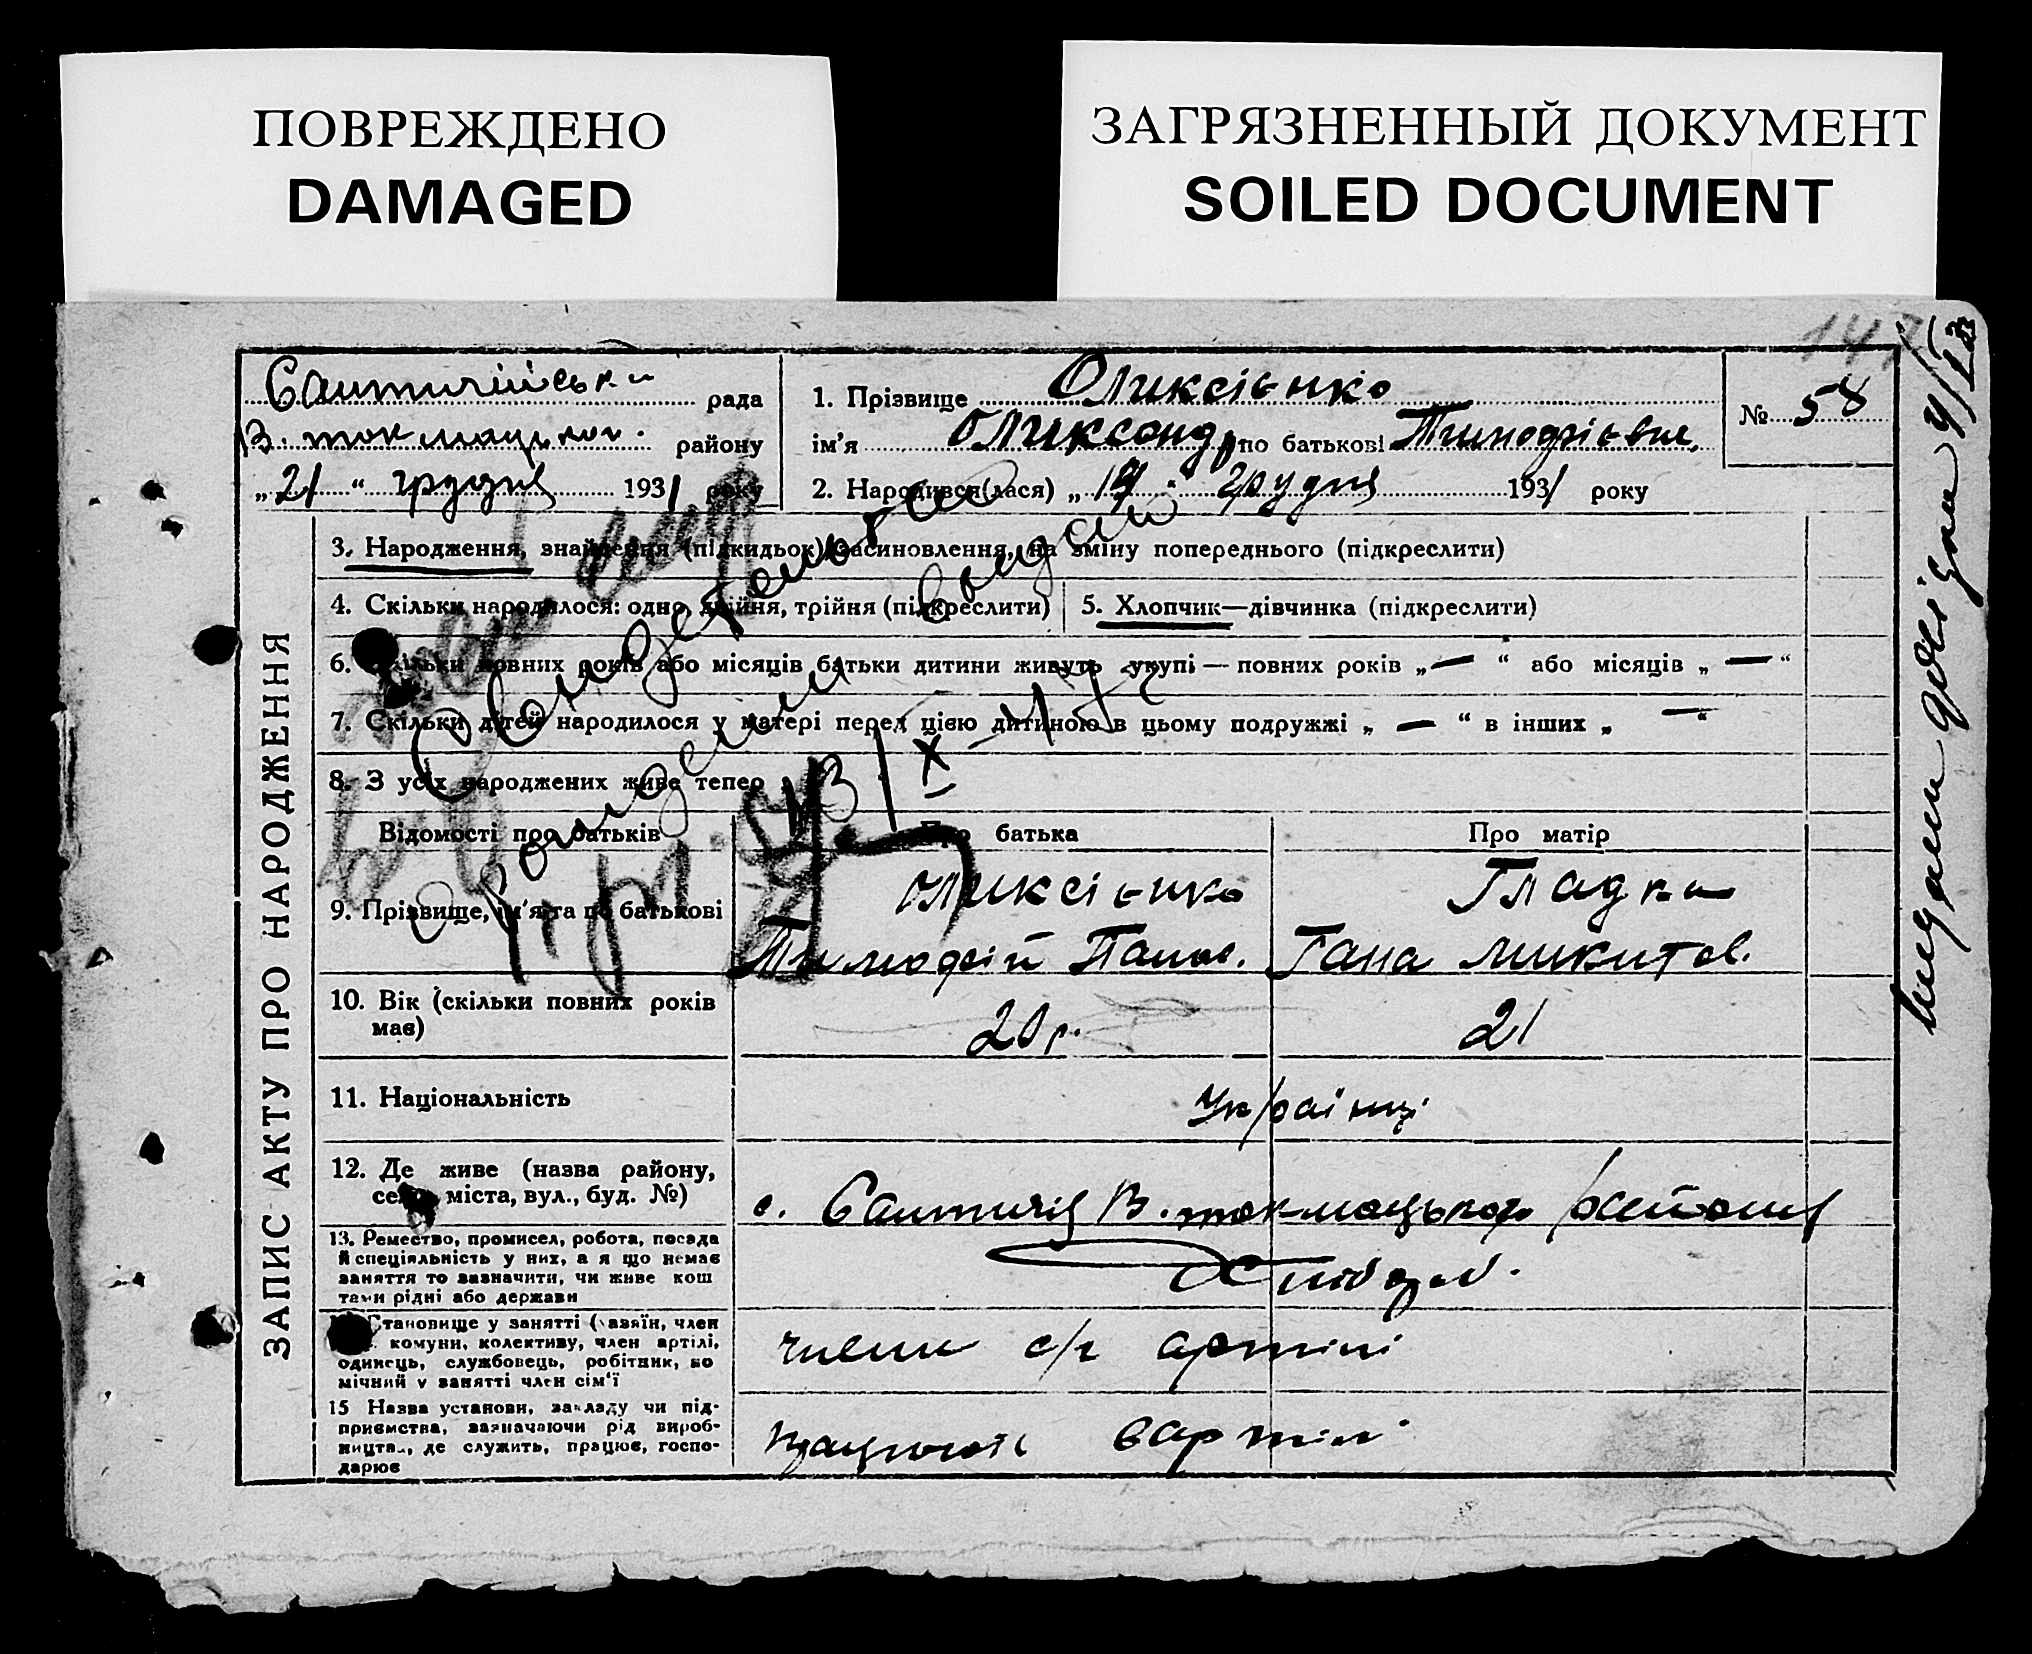 ПОВРЕЖДЕНО
DAMAGED
ЗАГРЯЗНЕННЫЙ ДОКУМЕНТ
SOILED DOCUMENT
147
рада
В. токмацьког. району
„21“ грудня 1931 року
1. Прізвище Оликсієнко
ім'я Оликсандр по батькові Тимофієвич
2. Народився(лася) „19“ грудня 1931 року
№ 58
ЗАПИС АКТУ ПРО НАРОДЖЕННЯ
3. Народження, знайдення (підкидьок), засиновлення, на зміну попереднього (підкреслити)
4. Скільки народилося: одно, двійня, трійня (підкреслити)
5. Хлопчик—дівчинка (підкреслити)
6. Скільки повних років або місяців батьки дитини живуть укупі — повних років „—“ або місяців „—“
7. Скільки дітей народилося у матері перед цією дитиною в цьому подружжі „—“ в інших „—“
8. З усіх народжених живе тепер
Відомості про батьків
Про батька
Про матір
9. Прізвище, ім'я та по батькові
Оликсієнко
Тимофій Панас.
Гладка
Гана Микитов.
10. Вік (скільки повних років
має)
20 р.
21
11. Національність
Українці
12. Де живе (назва району,
села, міста, вул., буд. №)
с. В. токмацького району
13. Ремество, промисел, робота, посада
й спеціяльність у них, а я що немає
заняття то зазначити, чи живе кош
тами рідні або держави
Становище у занятті (хазяїн, член
комуни, колективу, член артілі,
одинець, службовець, робітник, по
мічний у занятті член сім'ї
члени с/г артілі
15 Назва установи, закладу чи під-
приємства, зазначаючи рід вироб-
ництва, де служить, працює, госпо-
дарює
працюють в артілі